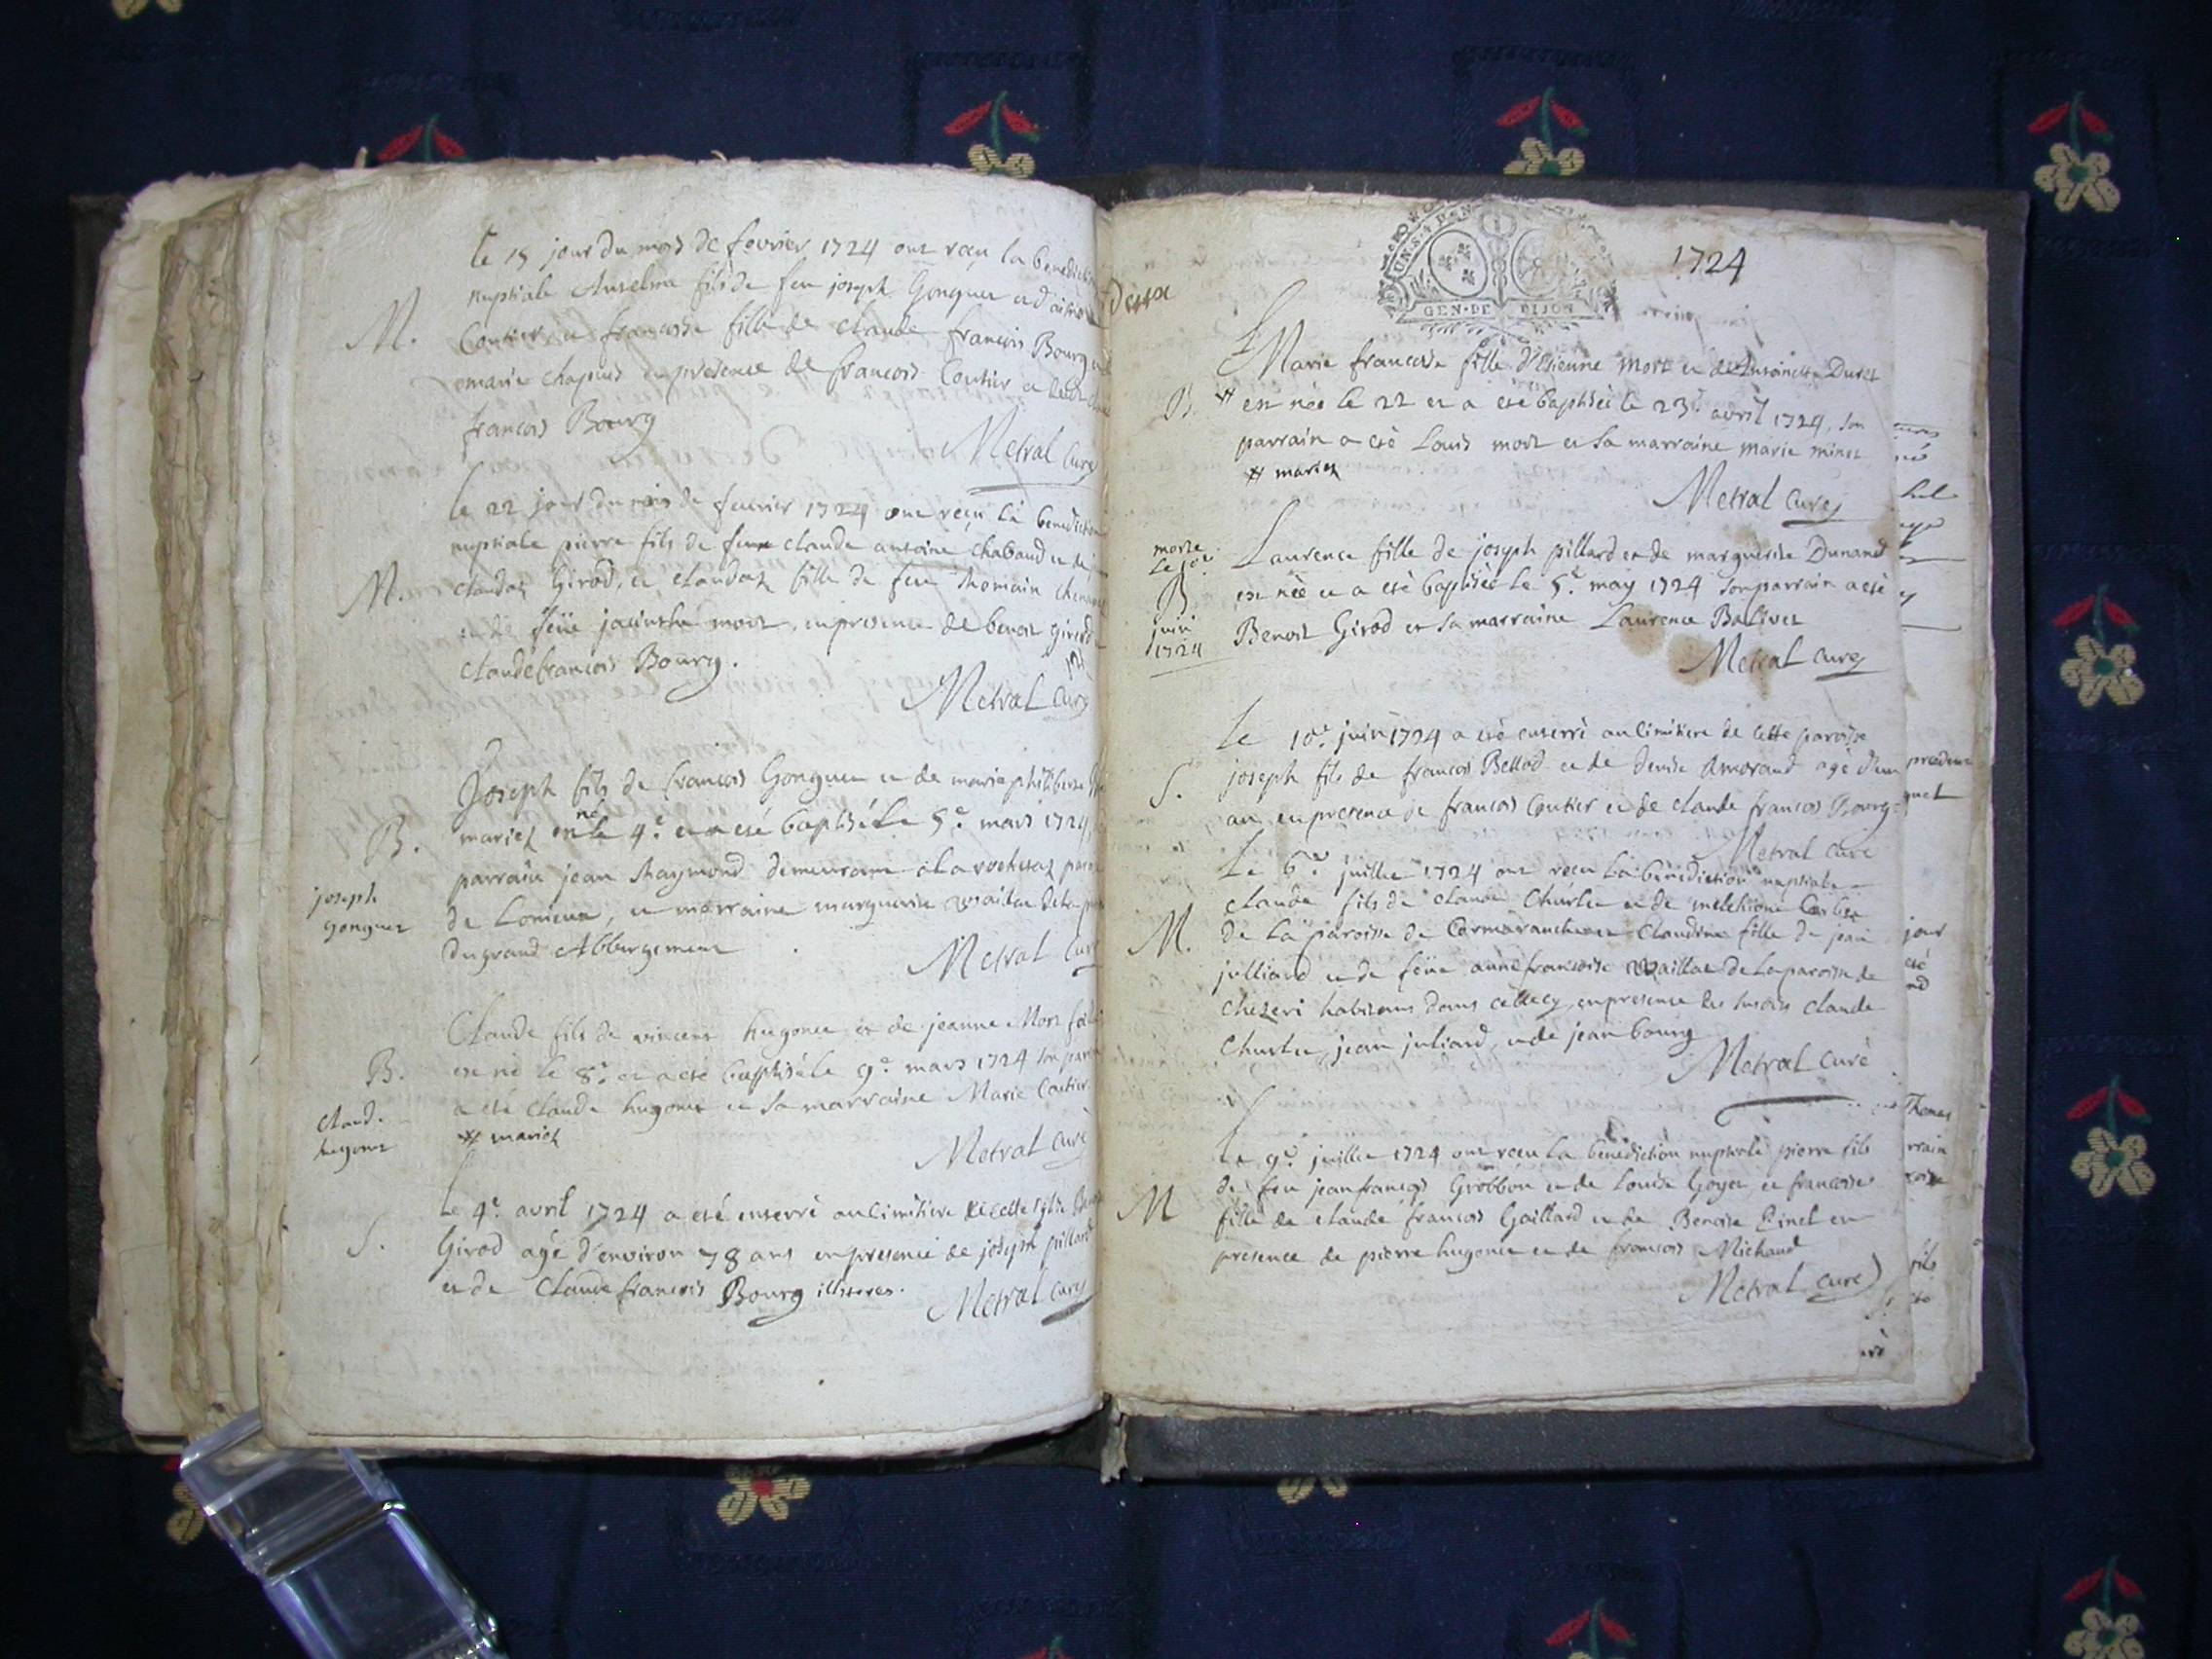 Le 15 jour du mois de fevrier 1724 ont reçu la benedict
nuptiale Anselme fils de feu joseph Gonguet
M. Coutier et francoise fille de claude francois Bourg
marie chapuis en presence de francois Coutier et
francois Bourg
Metral Curé
le 22 jour du mois de fevrier 1724 ont reçu la benediction
nuptiale pierre fils de feu claude antoine chabaud et de
M. claudaz Girod, et claudaz fille de feu Thomain
et de feüe jacinthe mort, en presence de benoit girod
claude francois Bourg.
Metral Curé
Joseph fils de francois Gonguet et de marie philiberte
B. mariez est né le 4.e et a esté baptisé le 5.e mars 1724
parrain jean Raymond demeurant a la rochetaz
joseph
gonguet
de Lonieux, et marraine marguerite vaillat de la
du grand Abbergement
Metral Cur
Claude fils de vincent hugonet et de jeanne Mort
B. est né le 8.e et a esté baptisé le 9.e mars 1724 son parr
a esté claude hugonet et sa marraine Marie Coutier
claud.
hugonet
# mariez
Metral Curé
Le 4.e avril 1724 a esté enterré au cimitiere de cette eglise
S. Girod agé d'environ 78 ans en presence de joseph pillard
et de Claude francois Bourg illiteres.
Metral Curé
GEN·DE DIJON
1724
Marie francoise fille d'Etienne Mort et de Antoinette Duret
B. # est née le 22 et a esté baptisée le 23.e avril 1724, son
parrain a esté Louis mort et sa marraine marie minet
# mariez
Metral Curé
morte
le 10.e
juin
1724
Laurence fille de joseph pillard et de marguerite Dunand
B est née et a esté baptisée le 5.e may 1724 son parrain a esté
Benoit Girod et sa marraine Laurence Balivet
Metral Curé
Le 10.e juin 1724 a esté enterré au cimitiere de cette paroisse
S. joseph fils de francois Bellod et de denise Amoraud agé d'un
an en presence de francois Coutier et de claude francois Bourg
Metral Curé
Le 6.e juillet 1724 ont reçu la benediction nuptiale
claude fils de claude Charlet et de melchione Carlier
M. de la paroisse de Cormaranche et Claudine fille de jean
julliard et de feüe anne francoise vaillat de la paroisse de
chezeri habitans dans cellecy, en presence des susdits claude
Charlet, jean juliard, et de jean bourg
Metral Curé
Le 9.e juillet 1724 ont reçu la benediction nuptiale pierre fils
de feu jean francois Grobbon et de Louise Goyet, et francoise
M fille de claude francois Gaillard et de Benoite Pinet en
presence de pierre hugonet et de francois Michaud
Metral Curé